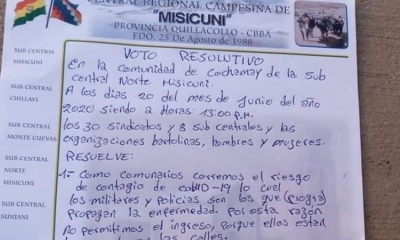 CENTRAL REGIONAL CAMPESINA DE
"MISICUNI"
PROVINCIA QUILLACOLLO - CBBA
FDO. 25 De Agosto de 1988
SUB CENTRAL
MISICUNI
SUB CENTRAL
CHILLAVI
SUB CENTRAL
MONTE CUEVAS
SUB CENTRAL
NORTE
MISICUNI
SUB CENTRAL
SUNJANI
VOTO RESOLUTIVO
En la comunidad de Cochamay de la Sub
central Norte Misicuni.
A los dias 20 del mes de Junio del año
2020 siendo a Horas: 13:00 P.M.
los 30 sindicatos y 8 sub centrales y las
organizaciones bartolinas, hombres y mujeres.
RESUELVE:
1= Como comunarios corremos el riesgo
de contagio de cobID-19 lo cual
los militares y policias son los que (progra)
Propagan la enfermedad. Por esta razón
No permitimos el ingreso, Porque ellos estan
las calles.